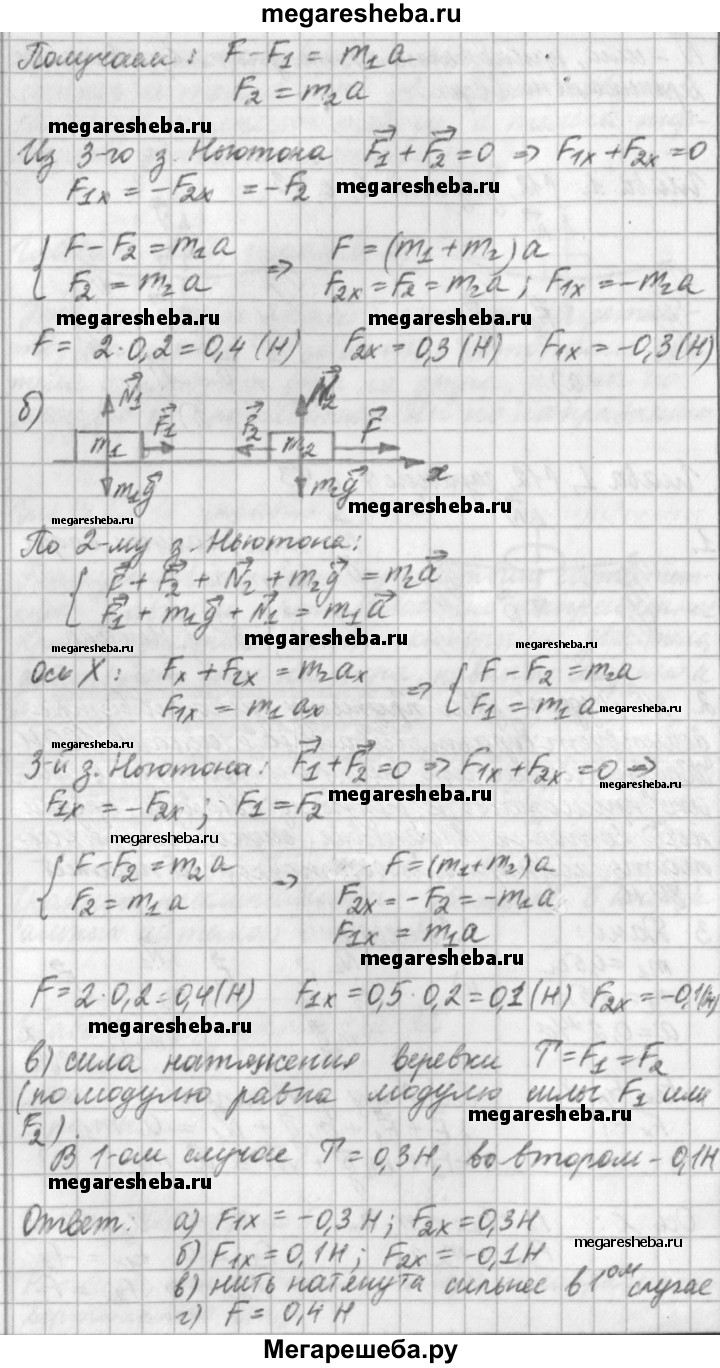 megaresheba.ru
Получаем: F-F₁ = m₁a
F₂ = m₂a
megaresheba.ru
Из 3-го з. Ньютона F⃗₁ + F⃗₂ = 0 ⇒ F₁ₓ + F₂ₓ = 0
F₁ₓ = -F₂ₓ = -F₂ megaresheba.ru
{ F-F₂ = m₁a ⇒ F = (m₁+m₂)a
F₂ = m₂a F₂ₓ = F₂ = m₂a; F₁ₓ = -m₂a
megaresheba.ru megaresheba.ru
F = 2·0,2 = 0,4 (Н) F₂ₓ = 0,3 (Н) F₁ₓ = -0,3 (Н)
б) N⃗₁ N⃗₂
F⃗₁ F⃗₂ F⃗
m₁ m₂
x
m₁g⃗ m₂g⃗ megaresheba.ru
megaresheba.ru
По 2-му з. Ньютона:
megaresheba.ru
{ F⃗ + F⃗₂ + N⃗₂ + m₂g⃗ = m₂a⃗
F⃗₁ + m₁g⃗ + N⃗₁ = m₁a⃗
megaresheba.ru megaresheba.ru
Ось X: Fₓ + F₂ₓ = m₂aₓ ⇒ { F-F₂ = m₂a
F₁ₓ = m₁aₓ F₁ = m₁a megaresheba.ru
megaresheba.ru
3-й з. Ньютона: F⃗₁ + F⃗₂ = 0 ⇒ F₁ₓ + F₂ₓ = 0 ⇒
megaresheba.ru
F₁ₓ = -F₂ₓ; F₁ = F₂ megaresheba.ru
megaresheba.ru
{ F-F₂ = m₂a ⇒ F = (m₁+m₂)a
F₂ = m₁a F₂ₓ = -F₂ = -m₁a
F₁ₓ = m₁a
megaresheba.ru
F = 2·0,2 = 0,4 (Н) F₁ₓ = 0,5·0,2 = 0,1 (Н) F₂ₓ = -0,1 (Н)
megaresheba.ru
в) сила натяжения веревки T = F₁ = F₂
(по модулю равна модулю силы F₁ или
megaresheba.ru
F₂).
В 1-ом случае T = 0,3Н, во втором - 0,1Н
megaresheba.ru
Ответ: а) F₁ₓ = -0,3 Н; F₂ₓ = 0,3Н
б) F₁ₓ = 0,1Н; F₂ₓ = -0,1Н megaresheba.ru
в) нить натянута сильнее в 1ᵒᵐ случае
г) F = 0,4 Н
Мегарешеба.ру